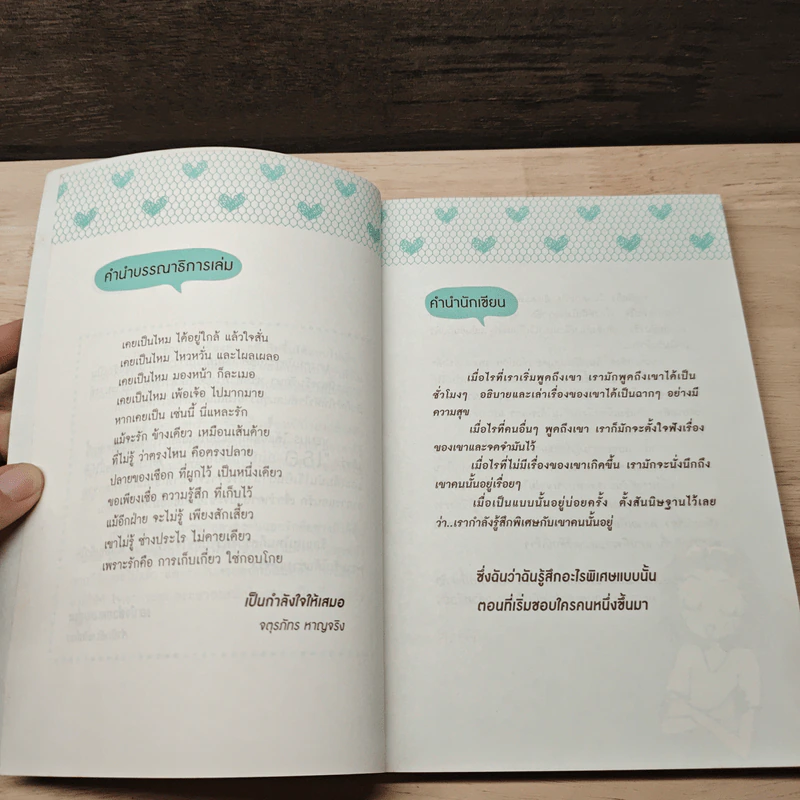 คำนำบรรณาธิการเล่ม
เคยเป็นไหม ได้อยู่ใกล้ แล้วใจสั่น
เคยเป็นไหม ไหวหวั่น และไผลเผลอ
เคยเป็นไหม มองหน้า ก็ละเมอ
เคยเป็นไหม เพ้อเจ้อ ไปมากมาย
หากเคยเป็น เช่นนี้ นี่แหละรัก
แม้จะรัก ข้างเดียว เหมือนเส้นด้าย
ที่ไม่รู้ ว่าตรงไหน คือตรงปลาย
ปลายของเชือก ที่ผูกไว้ เป็นหนึ่งเดียว
ขอเพียงเชื่อ ความรู้สึก ที่เก็บไว้
แม้อีกฝ่าย จะไม่รู้ เพียงสักเสี้ยว
เขาไม่รู้ ช่างประไร ไม่ดายเดียว
เพราะรักคือ การเก็บเกี่ยว ใช่กอบโกย
เป็นกำลังใจให้เสมอ
จตุรภัทร หาญจริง
คำนำนักเขียน
เมื่อไรที่เราเริ่มพูดถึงเขา เรามักพูดถึงเขาได้เป็น
ชั่วโมงๆ อธิบายและเล่าเรื่องของเขาได้เป็นฉากๆ อย่างมี
ความสุข
เมื่อไรที่คนอื่นๆ พูดถึงเขา เราก็มักจะตั้งใจฟังเรื่อง
ของเขาและจดจำมันไว้
เมื่อไรที่ไม่มีเรื่องของเขาเกิดขึ้น เรามักจะนั่งนึกถึง
เขาคนนั้นอยู่เรื่อยๆ
เมื่อเป็นแบบนั้นอยู่บ่อยครั้ง ตั้งสันนิษฐานไว้เลย
ว่า..เรากำลังรู้สึกพิเศษกับเขาคนนั้นอยู่
ซึ่งฉันว่าฉันรู้สึกอะไรพิเศษแบบนั้น
ตอนที่เริ่มชอบใครคนหนึ่งขึ้นมา